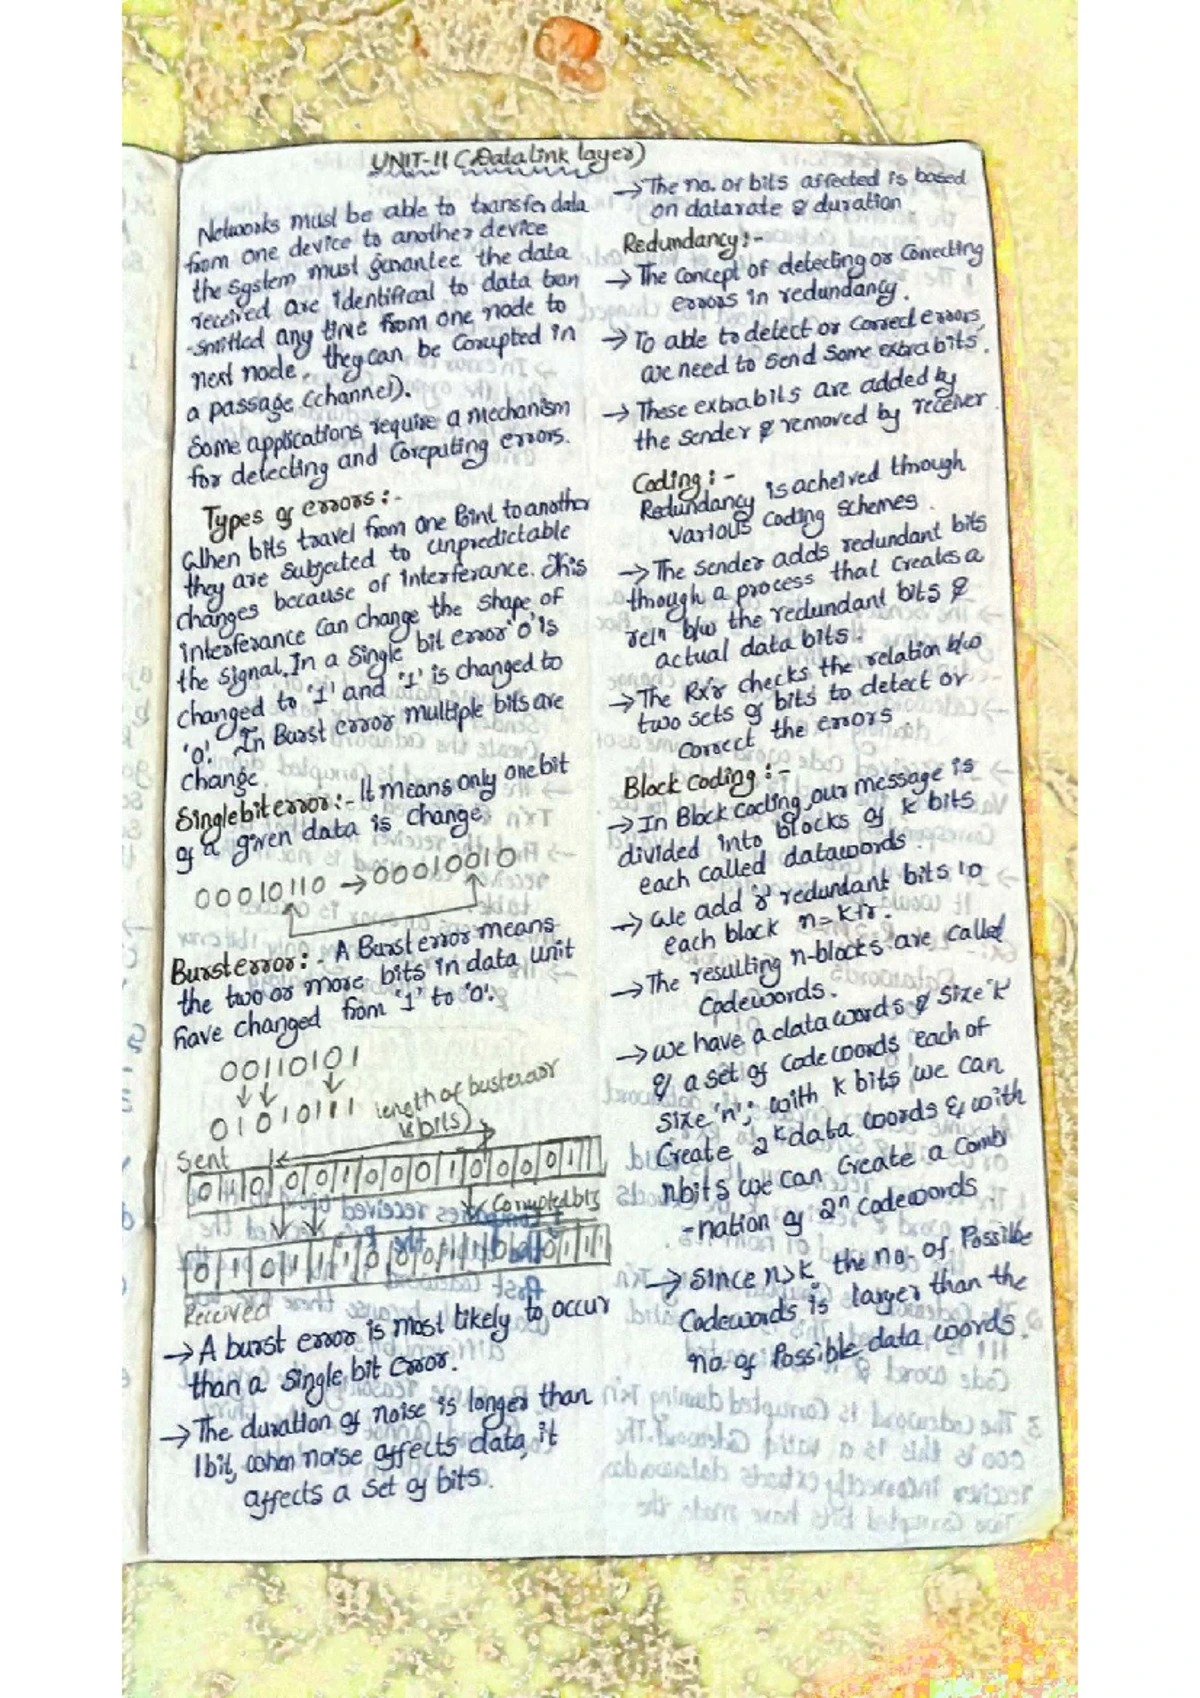 UNIT-II (Datalink layer)
Networks must be able to transfer data
from one device to another device
the system must guarantee the data
received are identifical to data tran
-smitted any time from one node to
next node. they can be Corupted in
a passage (channel).
Some applications require a mechanism
for detecting and Coreputing errors.
Types of errors :-
When bits travel from one Point to another
they are subjected to unpredictable
changes because of interferance. This
interferance can change the shape of
the signal. In a single bit error '0' is
changed to '1' and '1' is changed to
'0'. In Burst error multiple bits are
change.
Singlebit error:- It means only one bit
of a given data is change.
00010110 → 00010010
Burst error:- A Burst error means
the two or more bits in data unit
have changed from '1' to '0'.
00110101
01010111
length of
bits)
Sent
Corrupted bits
Received
→ A burst error is most likely to occur
than a single bit error.
→ The duration of noise is longer than
1bit, when noise affects data, it
affects a set of bits.
→ The no. of bits affected is based
on datarate & duration
Redundancy:-
→ The concept of detecting or Correcting
errors in redundancy.
→ To able to detect or correct errors,
we need to send some extra bits.
→ These extrabits are added by
the sender & removed by receiver.
Coding :-
Redundancy is acheived through
various coding schemes.
→ The sender adds redundant bits
through a process that creates a
reln b/w the redundant bits &
actual data bits.
→ The Rx'r checks the relation b/w
two sets of bits to detect or
correct the errors.
Block coding :-
→ In Block coding, our message is
divided into blocks of k bits
each called datawords.
→ We add 'r' redundant bits to
each block n=k+r.
→ The resulting n-blocks are called
Codewords.
→ we have a datawords & size 'k'
& a set of code words each of
size 'n'; with k bits we can
Create 2^k data words & with
nbits we can create a combi
-nation of 2^n codewords
→ Since n>k the no. of Possible
Codewords is larger than the
no. of Possible data words.